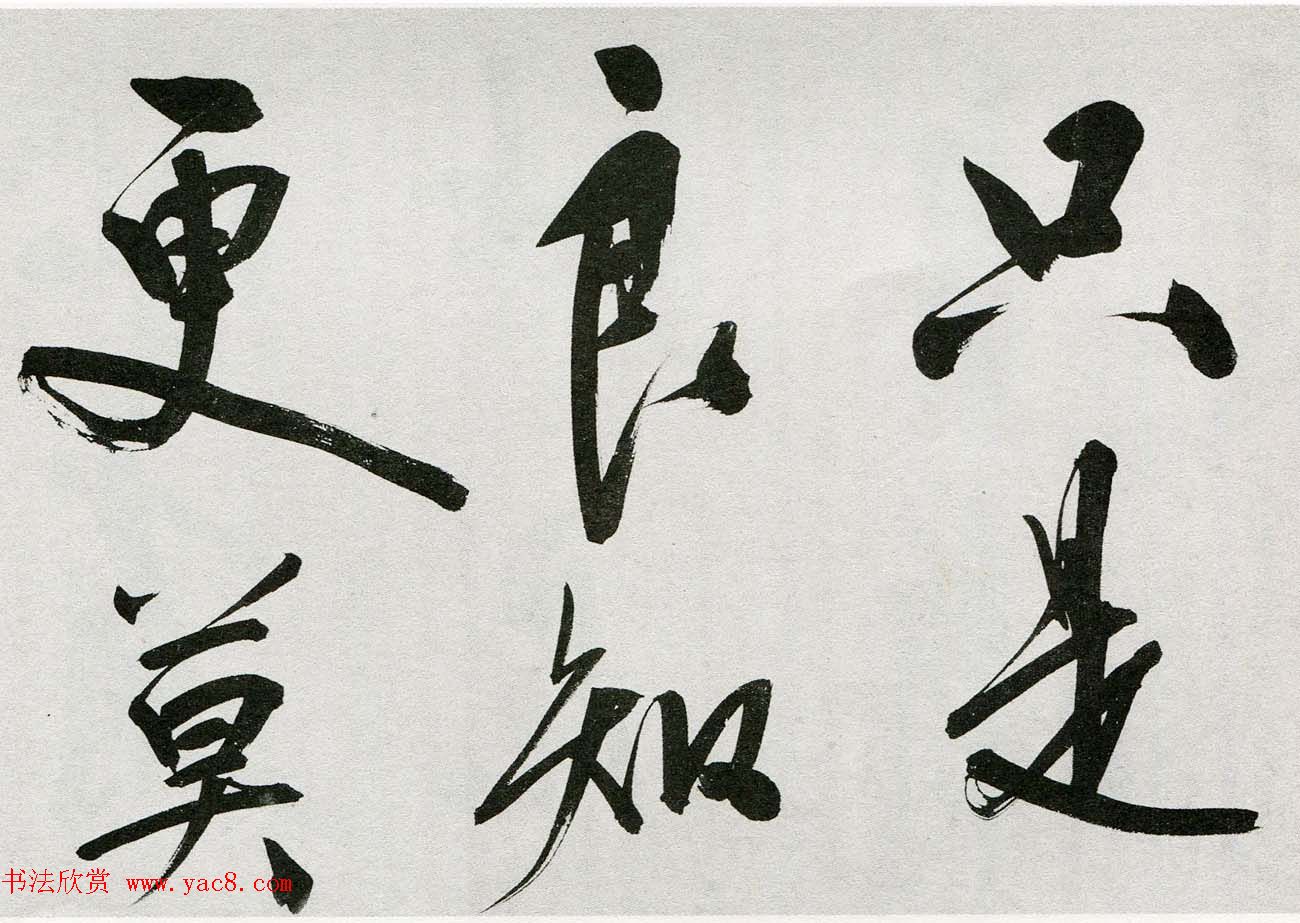 只是
良知
更莫
书法欣赏 www.yac8.com